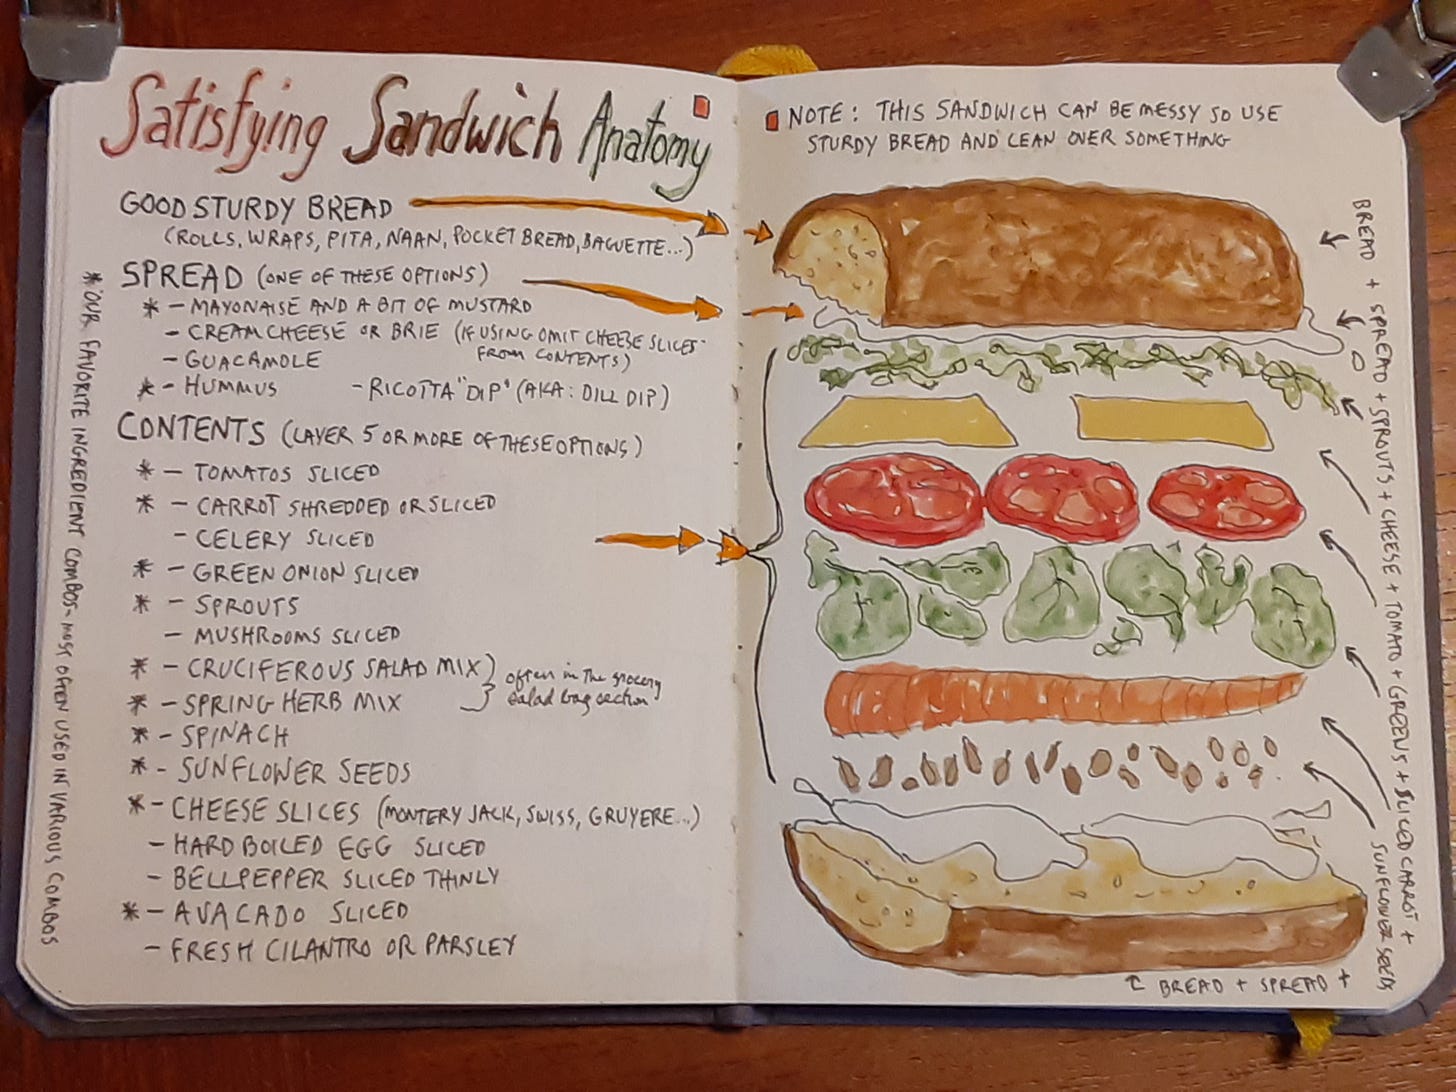 Satisfying Sandwich Anatomy
GOOD STURDY BREAD
(ROLLS, WRAPS, PITA, NAAN, POCKET BREAD, BAGUETTE...)
SPREAD (ONE OF THESE OPTIONS)
* - MAYONAISE AND A BIT OF MUSTARD
- CREAM CHEESE OR BRIE (IF USING OMIT CHEESE SLICES
FROM CONTENTS)
- GUACAMOLE
* - HUMMUS - RICOTTA "DIP" (AKA: DILL DIP)
CONTENTS (LAYER 5 OR MORE OF THESE OPTIONS)
* - TOMATOS SLICED
* - CARROT SHREDDED OR SLICED
- CELERY SLICED
* - GREEN ONION SLICED
* - SPROUTS
- MUSHROOMS SLICED
* - CRUCIFEROUS SALAD MIX
* - SPRING HERB MIX
often in the grocery
salad bag section
* - SPINACH
* - SUNFLOWER SEEDS
* - CHEESE SLICES (MONTERY JACK, SWISS, GRUYERE...)
- HARD BOILED EGG SLICED
- BELLPEPPER SLICED THINLY
* - AVACADO SLICED
- FRESH CILANTRO OR PARSLEY
* OUR FAVORITE INGREDIENT COMBOS - MOST OFTEN USED IN VARIOUS COMBOS
NOTE: THIS SANDWICH CAN BE MESSY SO USE
STURDY BREAD AND LEAN OVER SOMETHING
BREAD + SPREAD + SPROUTS + CHEESE + TOMATO + GREENS + SLICED CARROT +
SUNFLOWER SEEDS
BREAD + SPREAD +